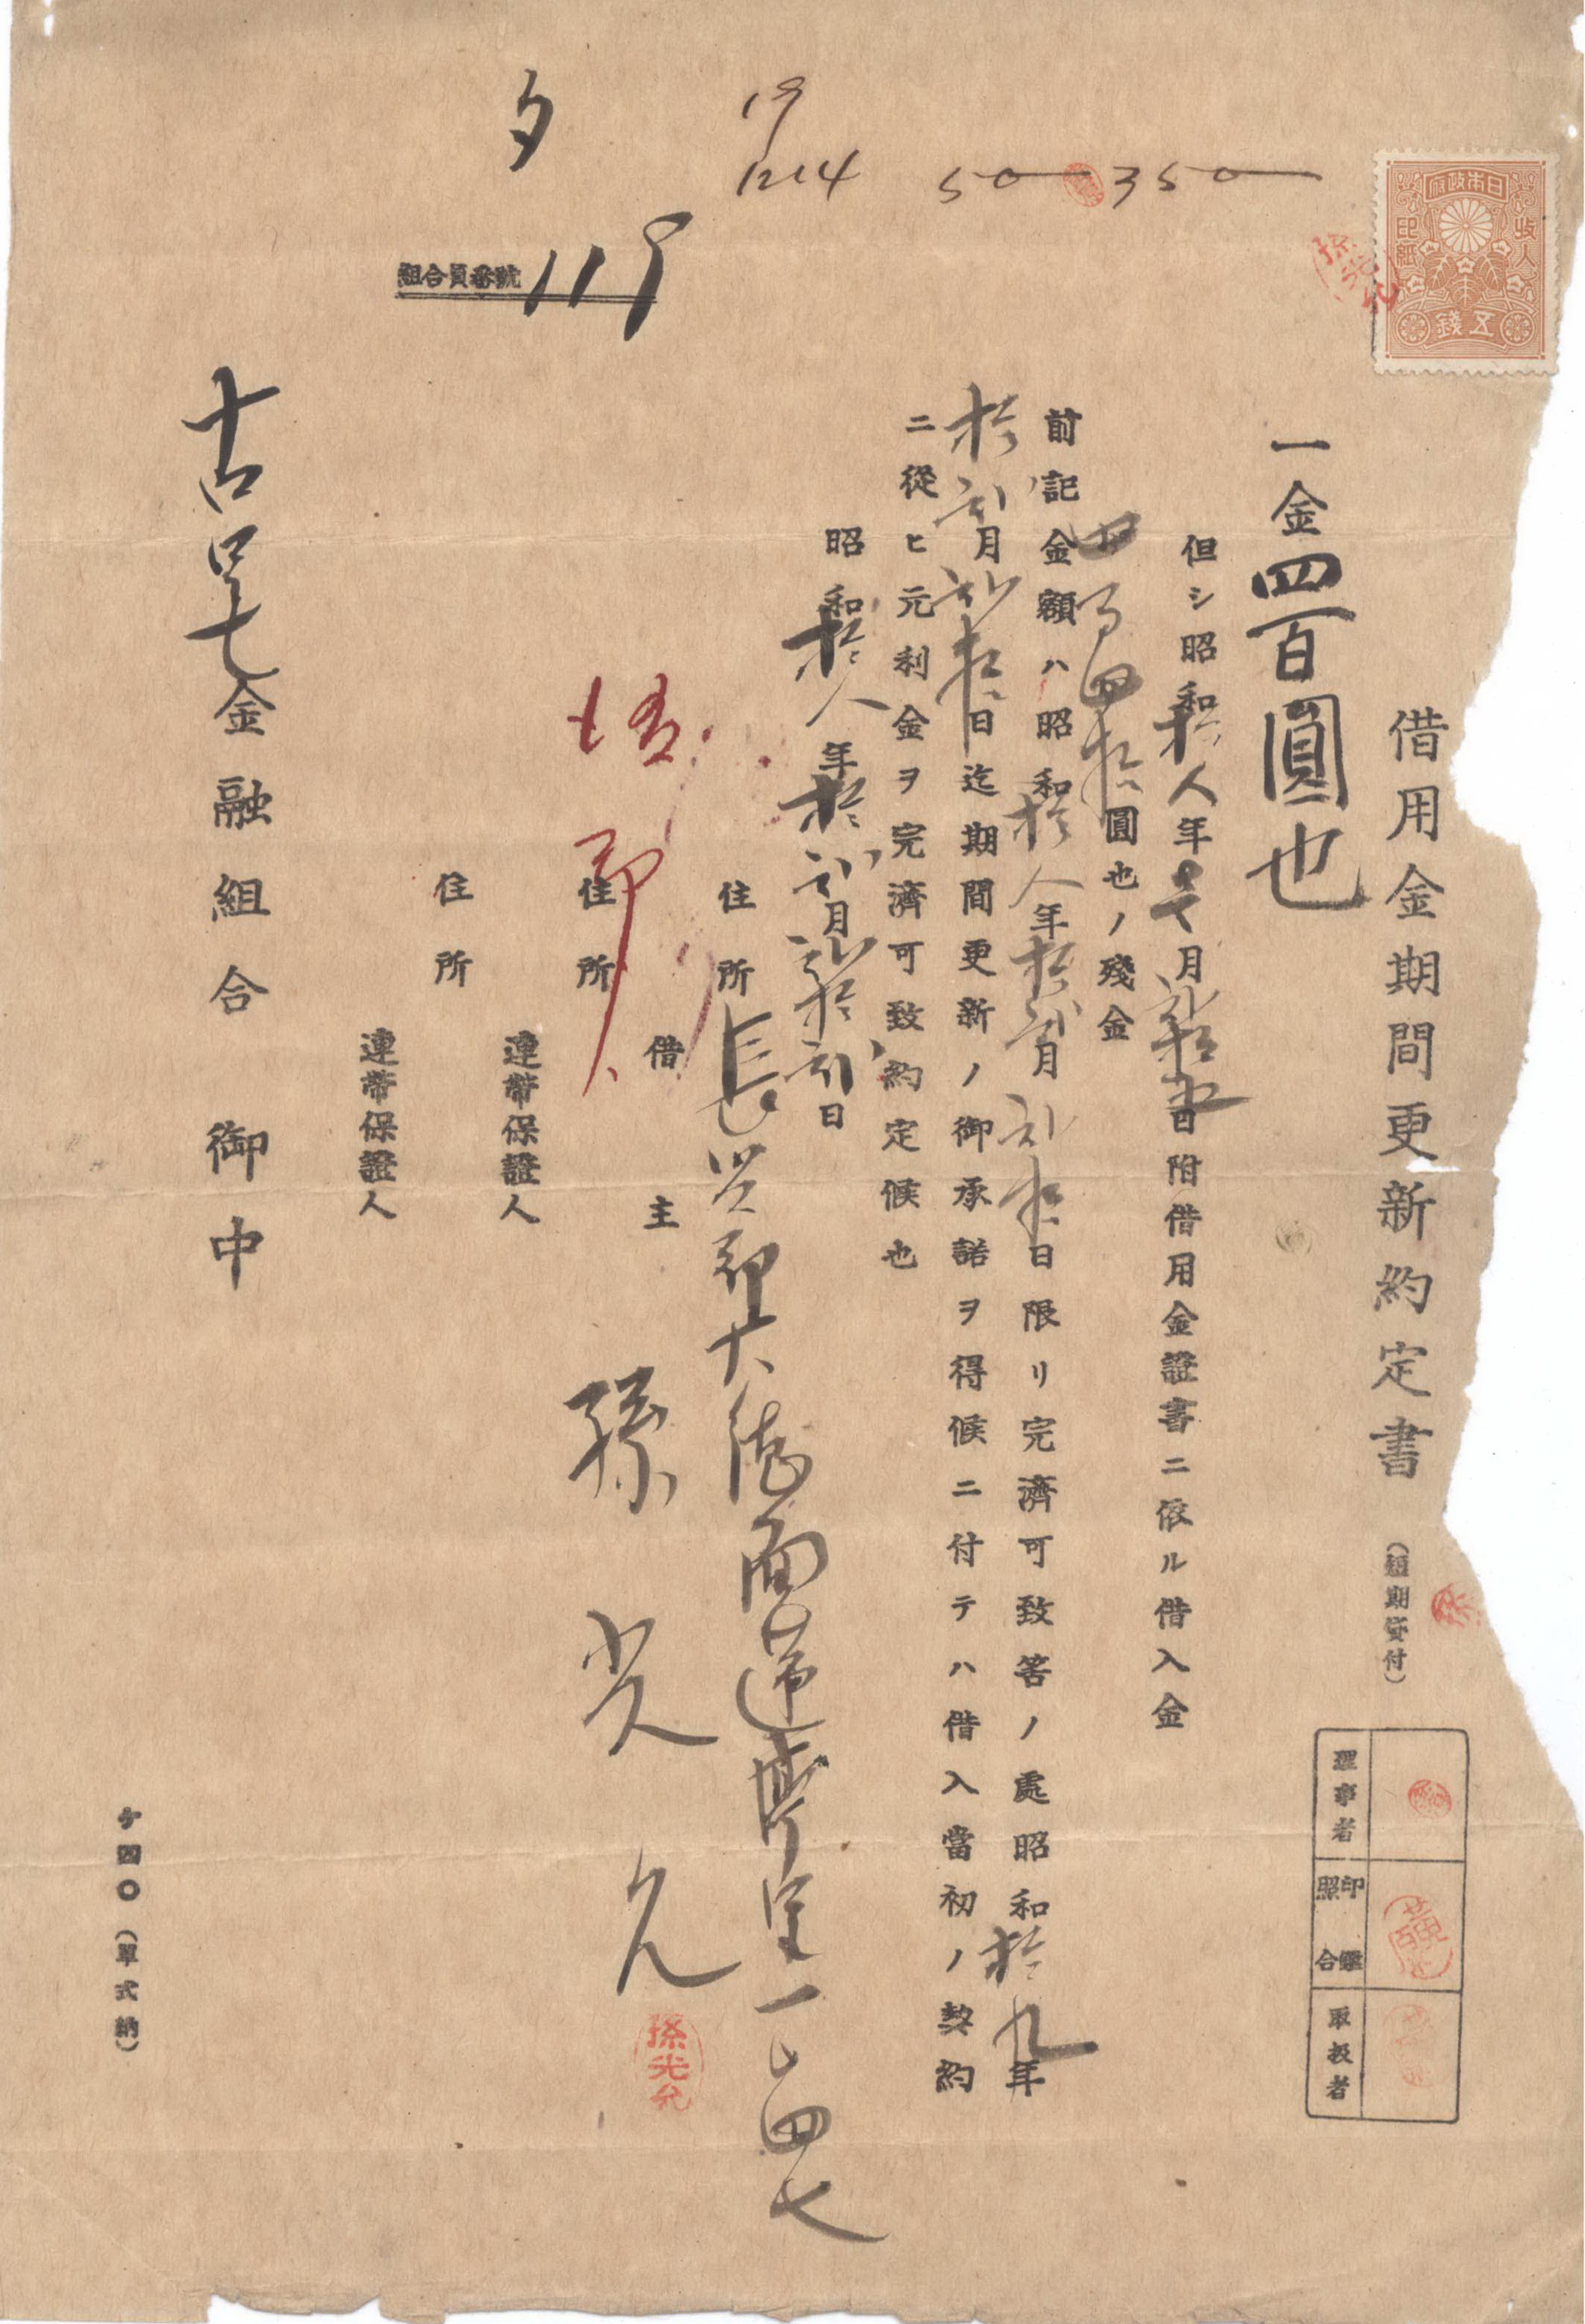 日本政府
收入印紙
五錢
孫光允
借用金期間更新約定書 (短期貸付)
理事者
印鑑照合
取扱者
一金四百圓也
但シ昭和拾八年七月貳拾五日附借用金證書ニ依ル借入金
四百四拾圓也ノ殘金
前記金額ハ昭和拾八年拾貳月貳拾日限リ完濟可致筈ノ處昭和拾九年
拾貳月貳拾日迄期間更新ノ御承諾ヲ得候ニ付テハ借入當初ノ契約
ニ從ヒ元利金ヲ完濟可致約定候也
昭和拾八年拾貳月貳拾貳日
住所 長興郡大德面蓮亭里一四七
借主 孫光允
孫光允
住所
連帶保證人
住所
連帶保證人
金融組合 御中
組合員番號 118
19
1214 50 350
ケ四〇(單式納)